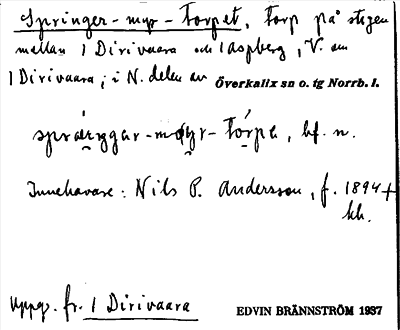 Springer-myr-Torpet, Torp på stigen
mellan 1 Dirivaara och 1 aspberg, V. om
1 Dirivaara; i N. delen av Överkalix sn o. tg Norrb. l.
Innehavare: Nils P. Andersson, f. 1894 +
kh.
Uppg. fr. 1 Dirivaara
EDVIN BRÄNNSTRÖM 1937